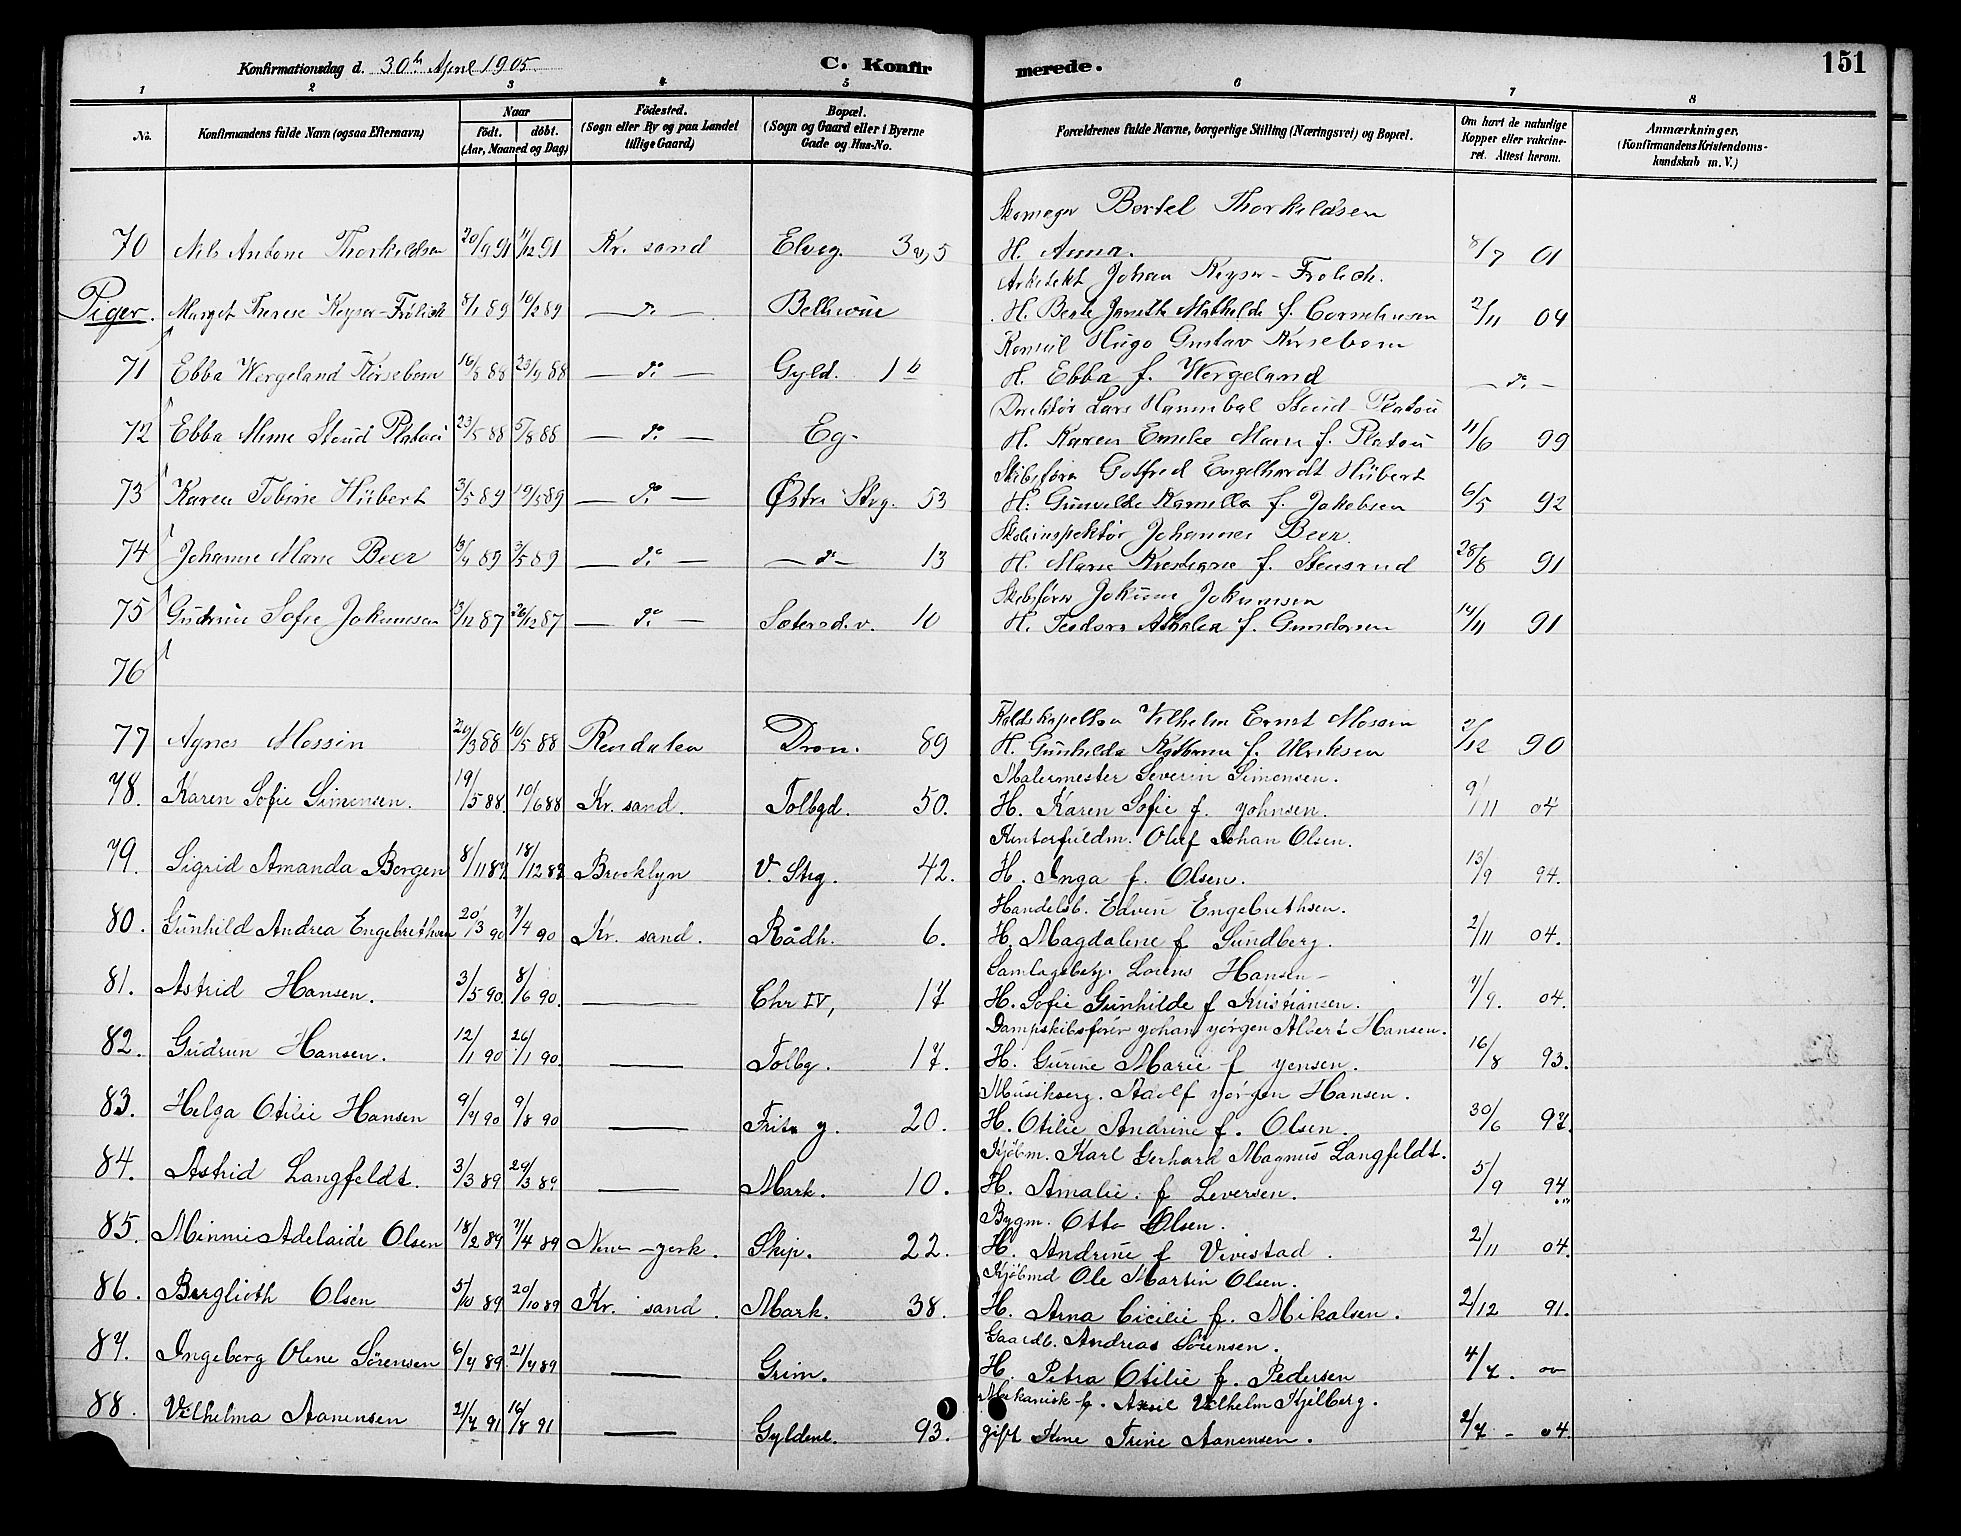 Konfirmationsdag d. 30th April 1905. C. Konfirmerede. 151
1 2 3 4 5 6 7 8
No. Konfirmandens fulde Navn (ogsaa Efternavn) Naar födt. döbt. (Aar, Maaned og Dag) Födested. (Sogn eller By og paa Landet tillige Gaard) Bopæl. (Sogn og Gaard eller i Byerne Gade og Hus-No. Forældrenes fulde Navne, borgerlige Stilling (Næringsvei) og Bopæl. Om havt de naturlige Kopper eller vakcineret. Attest herom. Anmærkninger. (Konfirmandens Kristendomskundskab m. V.)
Bertel Thorkildsen
70 Nils Antone Thorkildsen 20/9 91 /12 91 Kr. sand Elveg. 3 H. Anna. 8/7 01
Arkitekt Johan Keyser-Frölich.
Piger. Margit Therese Keyser-Frölich 8/1 89 10/2 89 do Bellevue H. Berte Janette Mathilde f. Cornelinsen 2/11 04
Konsul Hugo Gustav Kirsebom
71 Ebba Wergeland Kirsebom 16/8 88 23/9 88 do Gyld. 1 b H. Ebba f. Wergeland do
Direktör Lars Hannibal Stoud Platou
72 Ebba Stoud Platou 23/5 88 5/8 88 do Eg. H. Karen Emelie Marie f. Platou 11/6 99
Skibsförer Gotfred Engelhardt Hübert
73 Karen Tobine Hübert 3/5 89 19/5 89 do Østre Strg. 53 H. Gunvelde Kamilla f. Jakobsen 6/5 92
Skoleinspektör Johannes Beer.
74 Johanne Marie Beer 13/4 89 3/5 89 do do 13 H. Marie Kristiane f. Stensrud 28/8 91
Skibsförer Jokum Jokumsen
75 Gudrun Sofie Jokumsen 13/12 87 26/12 87 do Setersd.v. 10 H. Teodora Athalea f. Gundersen 14/11 91
76
Kaldskapellan Vilhelm Ernst Mossin
77 Agnes Mossin 20/3 88 10/5 88 Rendalen Dron. 89 H. Gunhilda f. Ulriksen 2/12 90
Malermester Severin Simensen.
78. Karen Sofie Simensen. 19/5 88. 10/6 88 Kr. sand. Tolbgd. 50. H. Karen Sofie f. Johnsen. 9/11 04
Olaf Johan Olsen.
79. Sigrid Amanda Borgen 8/11 87 18/12 87 Brooklyn V. Strg. 42. H. Inga f. Olsen. 13/9 94.
Handelsb. Edvin Engebrethsen.
80. Gunhild Andrea Engebrethsen 20/3 90 7/4 90 Kr. sand. Rådh. 6. H. Magdalene f Sundberg. 2/11 04.
Samlagsbetj. Lorens Hansen
81. Astrid Hansen. 3/5 90. 8/6 90. — Chr IV, 17 H. Sofie Gunhilde f Kristiansen. 7/9. 04.
Dampskibsförer Johan Jörgen Albert Hansen.
82. Gudrun Hansen. 12/1 90 26/1 90. — Tolbg. 17. H. Gurine Marie f Jensen. 16/8 93.
Musikserg. Adolf Jörgen Hansen.
83. Helga Otilie Hansen 9/7 90 9/8 90 — Frits g. 20. H. Otilie Andrine f. Olsen. 30/6 97.
Kjöbm. Karl Gerhard Magnus Langfeldt.
84. Astrid Langfeldt. 3/3 89 29/3 89. — Mark. 10. H. Amalie. f Leversen. 5/9 94
Bygm. Otto Olsen.
85. Minnie Adelaide Olsen 18/2 89 7/4 89 New-york. Skip. 22. H. Andrine f Vivestad. 2/11 04.
Kjöbmd Ole Martin Olsen.
86. Berglioth Olsen 5/10 89 20/10 89 Kr. sand. Mark. 38. H. Arna Cicilie f. Mikalsen. 2/12 91.
Gaardb. Andreas Sörensen.
87. Ingeborg Olene Sörensen 6/7 89. 21/7 89 — Grim. H. Petra Otilie f. Pedersen 4/7. 00
Vilhelm Kjelberg.
88. Vilhelma Aanensen 2/7 91 16/8 91 — Gyldenl. 93. gift Trine Aanensen. 2/7 - 04.